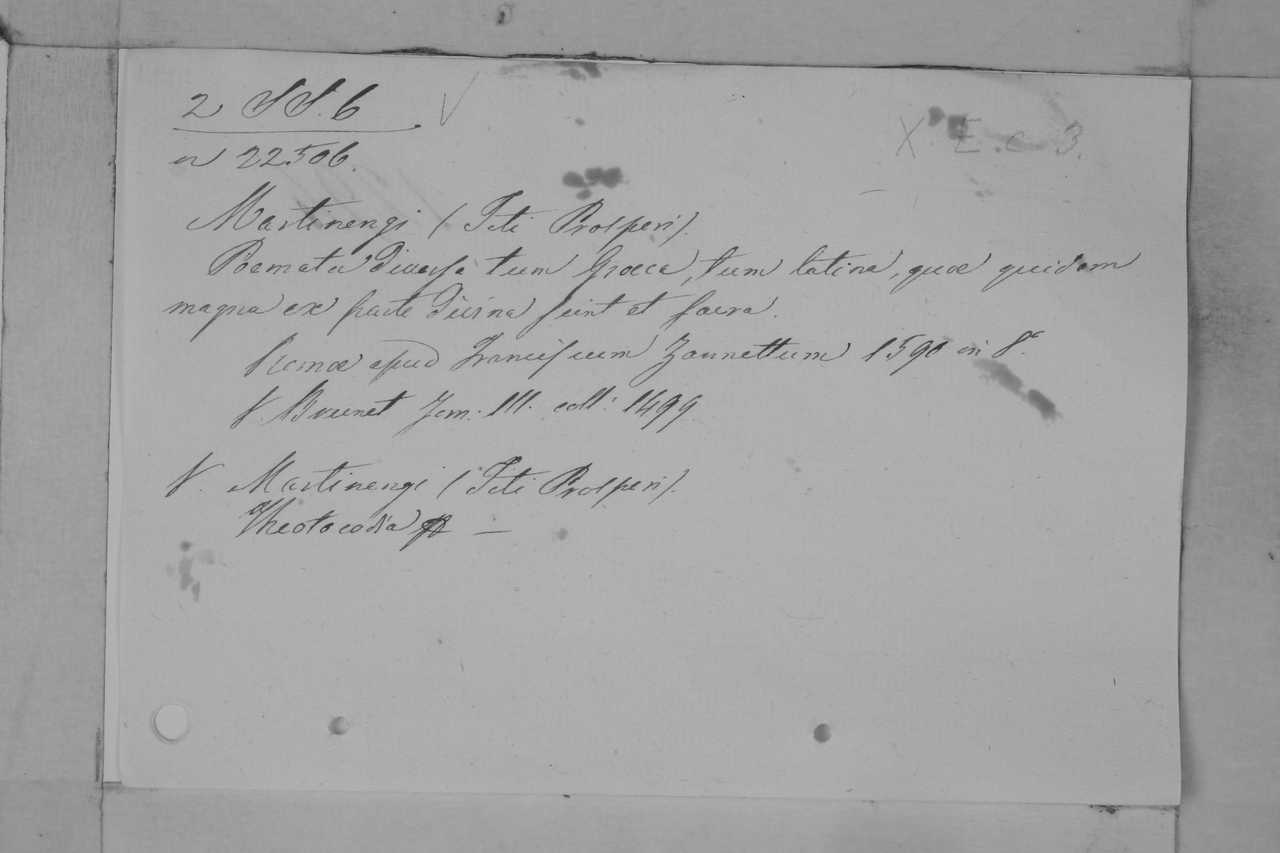 2 SS. 6 X. E. c. 3.
n 22506.
Martinengi (Titi Prosperi).
Poemata diversa tum Graeca, tum latina, quae quidem
magna ex parte divina sunt et sacra.
Romae apud Franciscum Zannettum 1590 in 8°.
V. Brunet Tom: III. coll: 1499
V. Martinengi (Titi Prosperi).
Theotocodia —